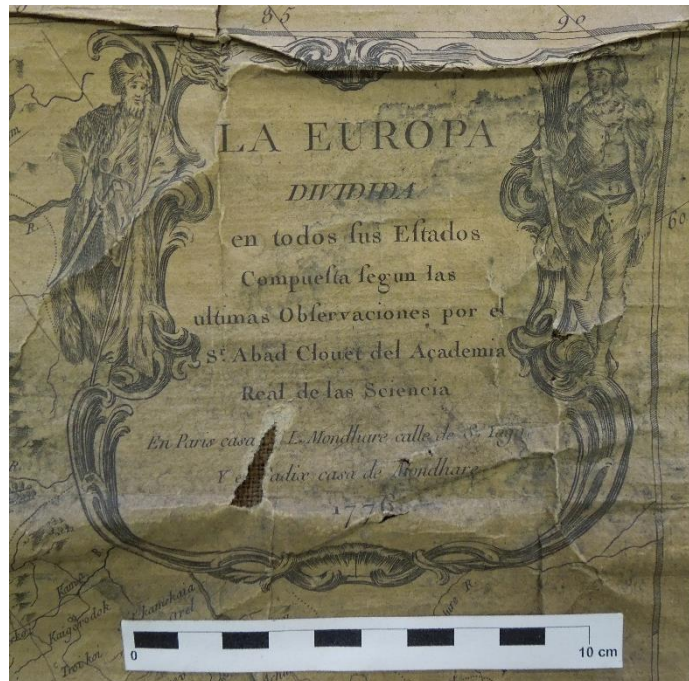 85
90
LA EUROPA
DIVIDIDA
en todos ſus Eſtados
Compueſta ſegun las
ultimas Obſervaciones por el
Sr. Abad Clouet del Academia
Real de las Sciencia
60
En Paris casa L. Mondhare calle de S. Yago
Y adix casa de Mondhare
1776
R.
R.
R.
Kaigorodok
0
10 cm